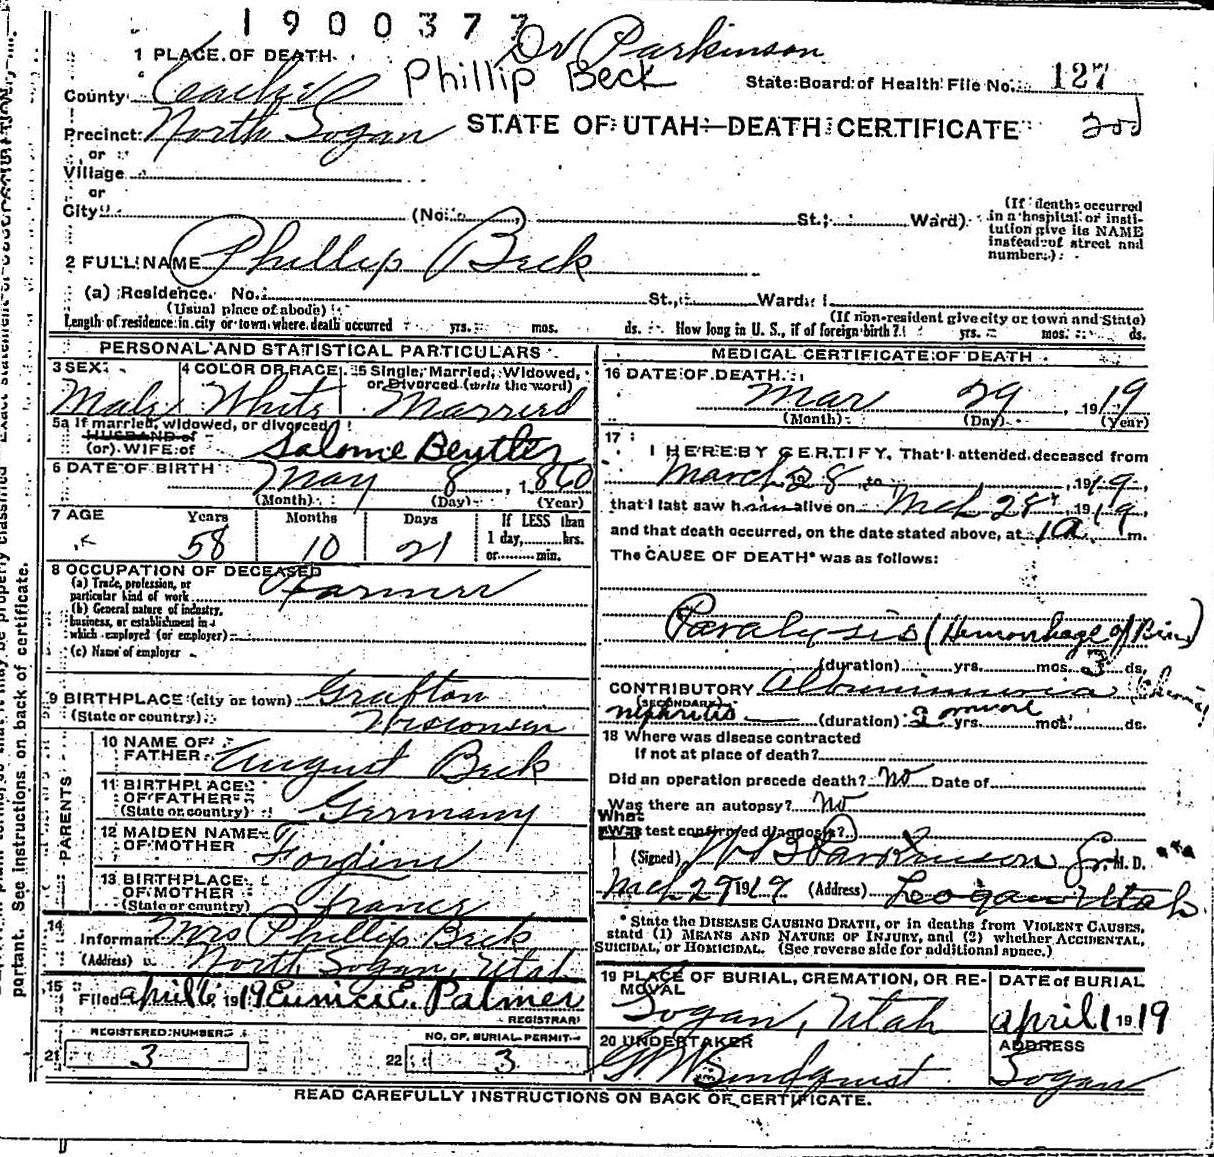 1900377
Dr Parkinson
1 PLACE OF DEATH
Phillip Beck
State Board of Health File No. 127
County
Precinct North Logan
STATE OF UTAH—DEATH CERTIFICATE
or
Village
or
City (No. St.; Ward)
(If death occurred in a hospital or institution give its NAME instead of street and number.)
2 FULL NAME Phillip Beck
(a) Residence. No. St., Ward.
(Usual place of abode) (If non-resident give city or town and State)
Length of residence in city or town where death occurred yrs. mos. ds. How long in U. S., if of foreign birth? yrs. mos. ds.
PERSONAL AND STATISTICAL PARTICULARS
3 SEX 4 COLOR OR RACE 5 Single, Married, Widowed, or Divorced (write the word)
Male White Married
5a If married, widowed, or divorced
HUSBAND of
(or) WIFE of Salome Beytler
6 DATE OF BIRTH May 8, 1860
(Month) (Day) (Year)
7 AGE Years Months Days If LESS than 1 day, hrs. or min.
58 10 21
8 OCCUPATION OF DECEASED
(a) Trade, profession, or particular kind of work Farmer
(b) General nature of industry, business, or establishment in which employed (or employer)
(c) Name of employer
9 BIRTHPLACE (city or town) Grafton
(State or country) Wisconsin
PARENTS
10 NAME OF FATHER August Beck
11 BIRTHPLACE OF FATHER (State or country) Germany
12 MAIDEN NAME OF MOTHER Fordine
13 BIRTHPLACE OF MOTHER (State or country) France
14 Informant Mrs Phillip Beck
(Address) North Logan, Utah
15 Filed april 6 1919 Eunice E. Palmer
REGISTRAR
REGISTERED NUMBER NO. OF BURIAL PERMIT
21 3 22 3
MEDICAL CERTIFICATE OF DEATH
16 DATE OF DEATH
Mar 29, 1919
(Month) (Day) (Year)
17 I HEREBY CERTIFY, That I attended deceased from
March 28 to , 1919,
that I last saw him alive on Mch 28, 1919
and that death occurred, on the date stated above, at 1 a m.
The CAUSE OF DEATH* was as follows:
Paralysis (Hemorrhage of Brain)
(duration) yrs. mos. 3 ds.
CONTRIBUTORY Albuminuria
(SECONDARY)
nephritis (duration) 2 yrs. mos. ds.
18 Where was disease contracted
If not at place of death?
Did an operation precede death? no Date of
Was there an autopsy? no
What test confirmed diagnosis?
(Signed) W B Parkinson Sr M. D.
Mch 29 1919 (Address) Logan Utah
* State the DISEASE CAUSING DEATH, or in deaths from VIOLENT CAUSES, state (1) MEANS AND NATURE OF INJURY, and (2) whether ACCIDENTAL, SUICIDAL, or HOMICIDAL. (See reverse side for additional space.)
19 PLACE OF BURIAL, CREMATION, OR REMOVAL DATE of BURIAL
Logan, Utah april 1 1919
20 UNDERTAKER ADDRESS
Lindquist Logan
READ CAREFULLY INSTRUCTIONS ON BACK OF CERTIFICATE.
portant. See instructions on back of certificate.